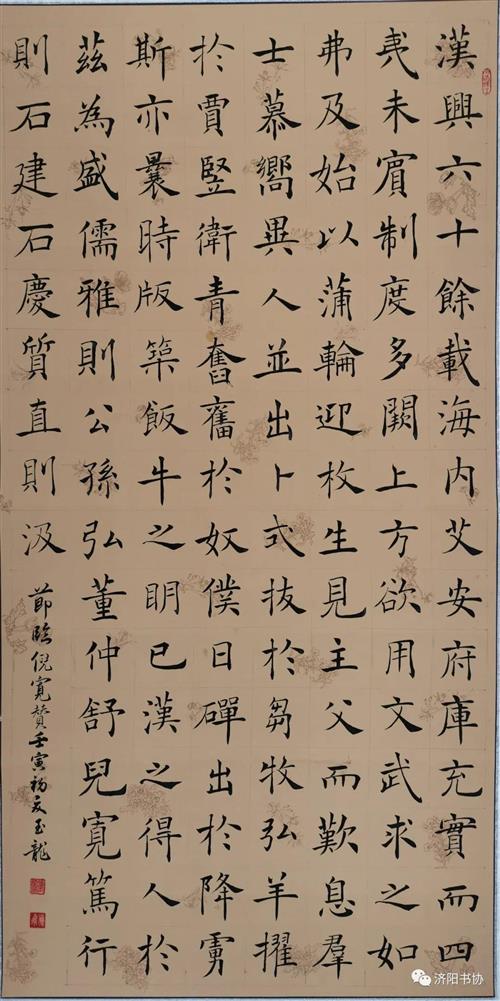 漢興六十餘載海内艾安府庫充實而四
夷未賓制度多闕上方欲用文武求之如
弗及始以蒲輪迎枚生見主父而歎息羣
士慕嚮異人並出卜式拔於芻牧弘羊擢
於賈豎衛青奮舊於奴僕日磾出於降虜
斯亦曩時版築飯牛之明已漢之得人於
茲為盛儒雅則公孫弘董仲舒兒寬篤行
則石建石慶質直則汲
節臨倪寬贊壬寅初夏玉龍
济阳书协